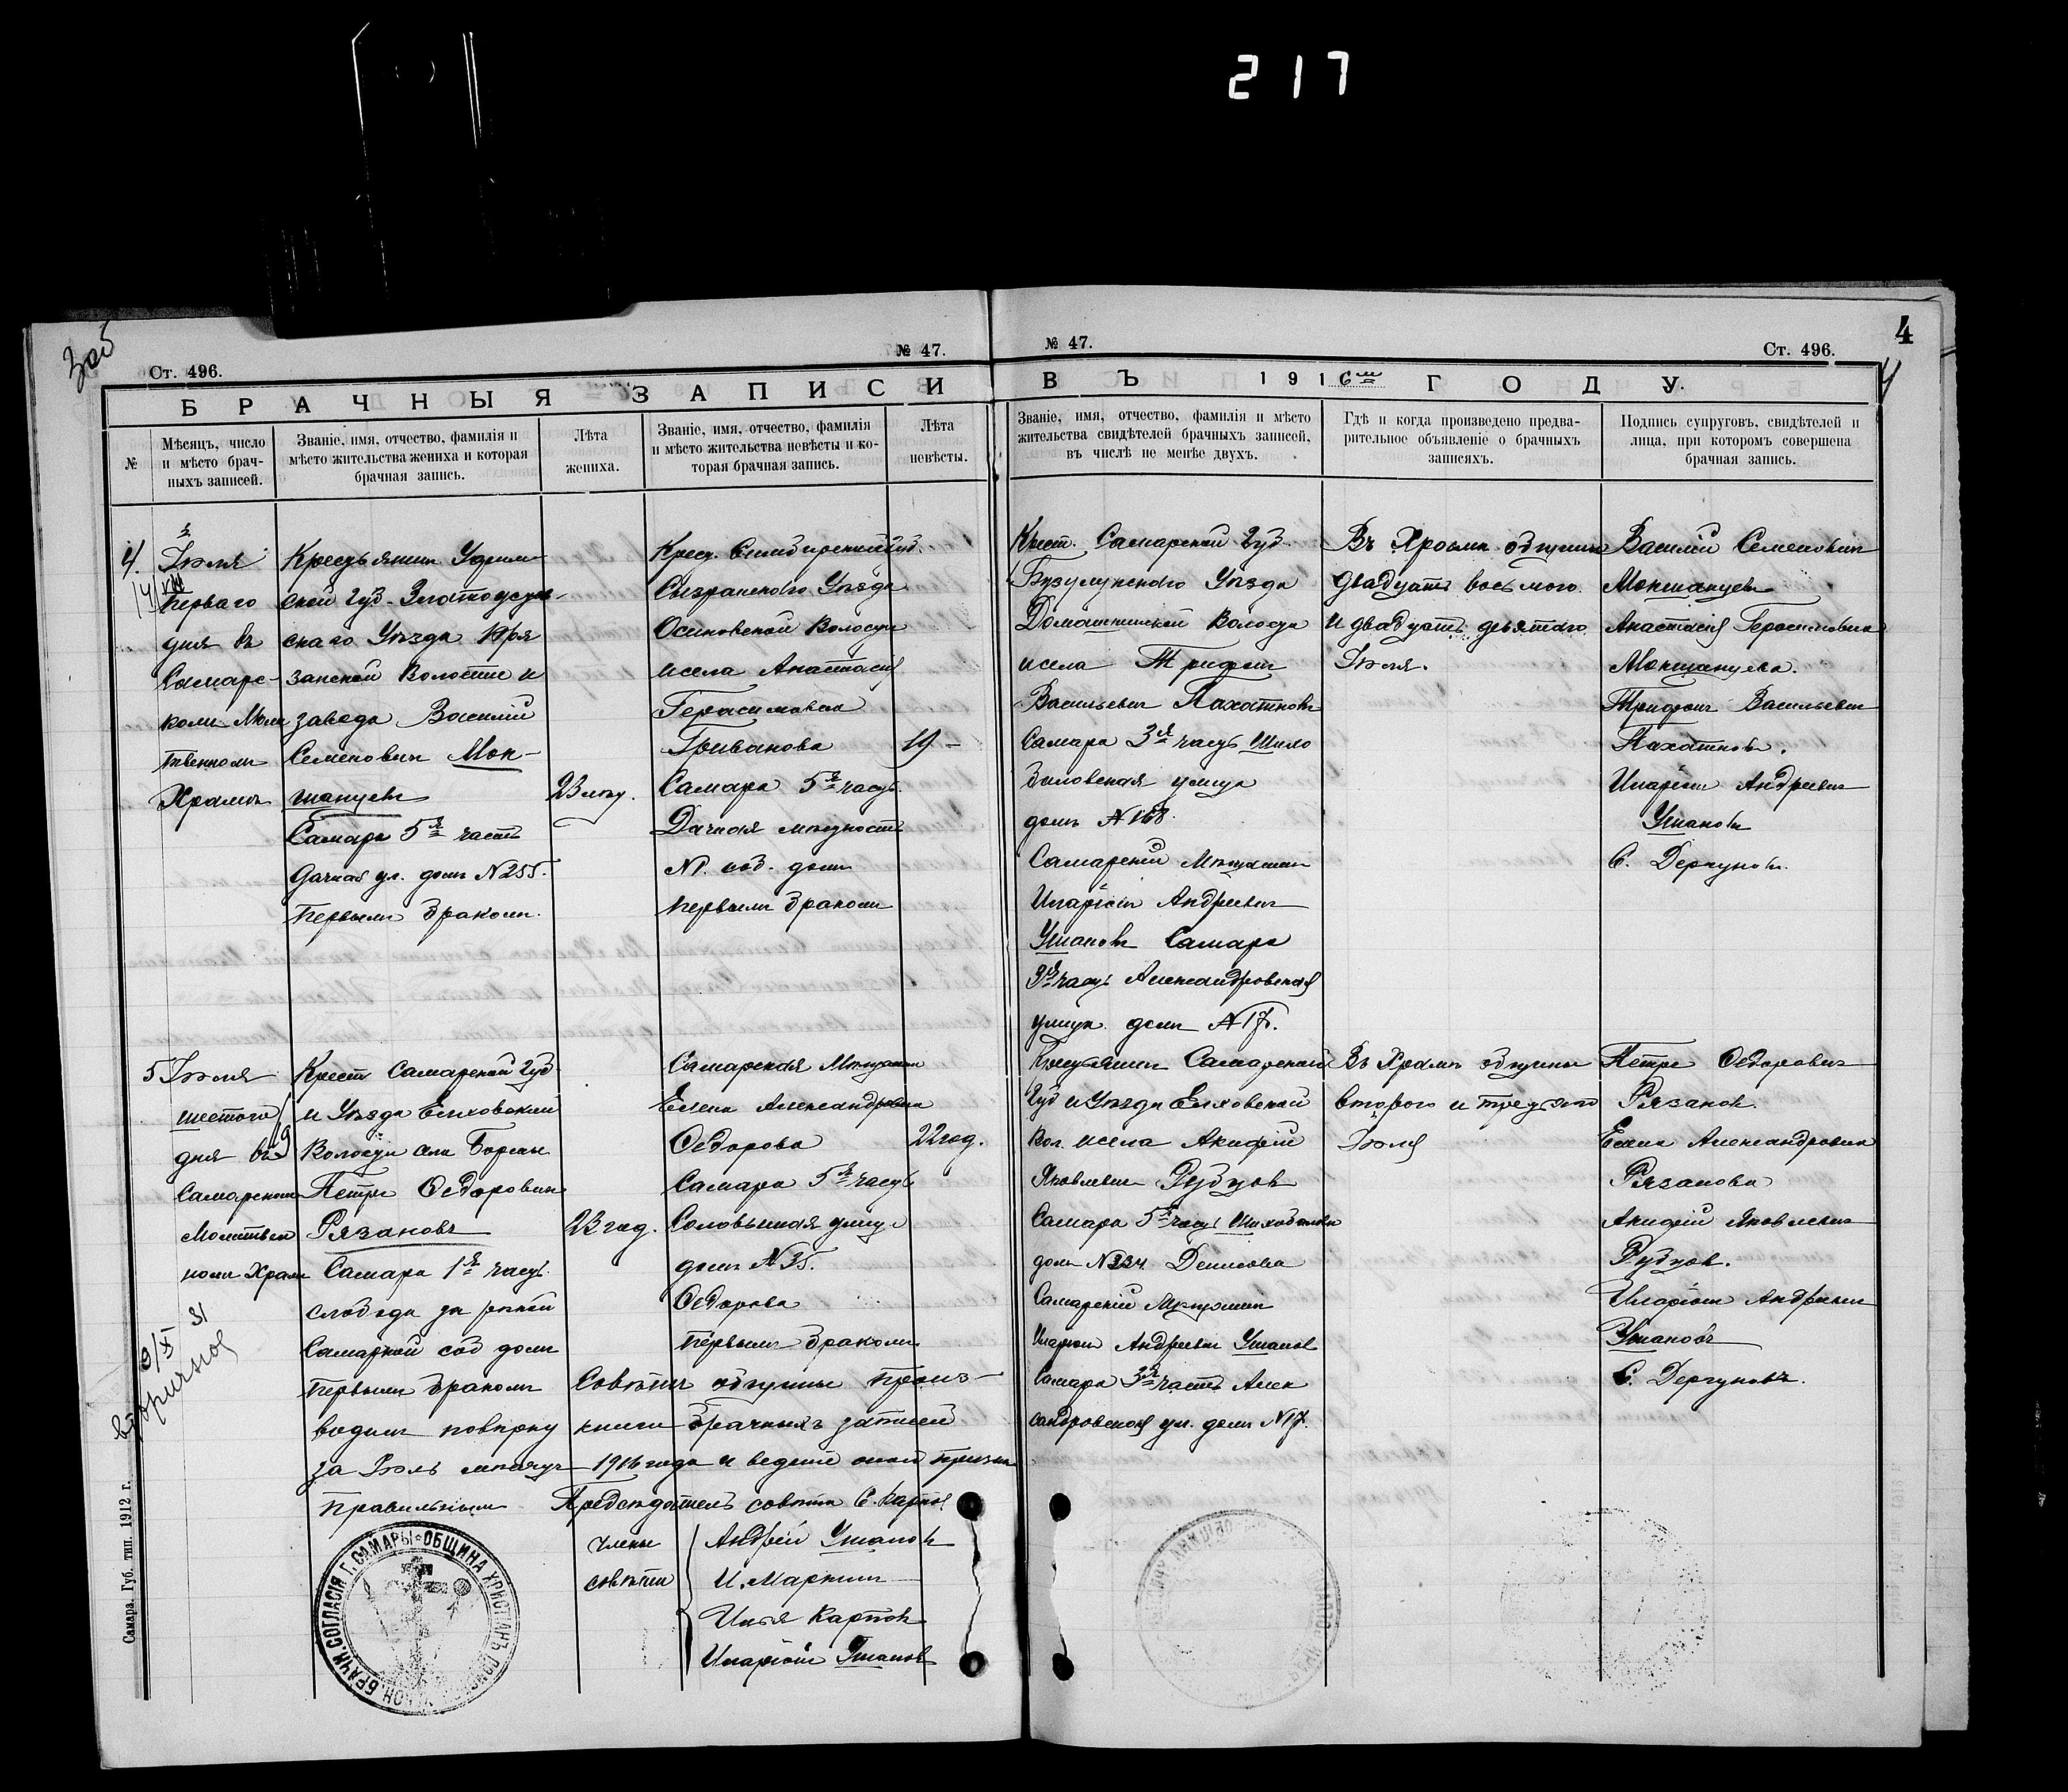 217
3об
4
Ст. 496.
№ 47.
№ 47.
Ст. 496.
БРАЧНЫЯ ЗАПИСИ
ВЪ 1916 ГОДУ.
№
Мѣсяцъ, число
и мѣсто брач-
ныхъ записей.
Званіе, имя, отчество, фамилія и
мѣсто жительства жениха и которая
брачная запись.
Лѣта
жениха.
Званіе, имя, отчество, фамилія
и мѣсто жительства невѣсты и ко-
торая брачная запись.
Лѣта
невѣсты.
Званіе, имя, отчество, фамилія и мѣсто
жительства свидѣтелей брачныхъ записей,
въ числѣ не менѣе двухъ.
Гдѣ и когда произведено предва-
рительное объявленіе о брачныхъ
записяхъ.
Подпись супруговъ, свидѣтелей и
лица, при которомъ совершена
брачная запись.
4.
Іюля
перваго
дня въ
Самарс-
комъ Моли
твенномъ
Храмѣ
Крестьянинъ Уфим
ской губ. Златоустов-
скаго Уѣзда Юря
занской Волости и
завода Василій
Семеновичъ Мок-
шанцевъ
Самара 5я часть
Дачная ул. домъ №255.
Первымъ бракомъ.
23 лѣт.
Крест. Симбирской губ.
Сызранскаго Уѣзда
Осиновской Волости
и села Анастасія
Герасимовна
Гриванова
Самара 5я часть
Дачная мѣстность
№. соб. домъ
первымъ бракомъ
19 -
Крест. Самарской губ.
Бузулукскаго Уѣзда
Домашкинской Волости
и села Трифонъ
Васильевич Пахатновъ
Самара 3я часть Шихо
баловская улица
домъ №168.
Самарскій Мѣщанинъ
Иларіонъ Андреевич
Ушановъ Самара
3я часть Александровская
улица домъ №17.
Въ Храмѣ общины
двадцать восьмого
и двадцать девятаго
Іюля.
Василій Семеновичъ
Мокшанцевъ
Анастасія Герасимовна
Мокшанцева.
Трифонъ Васильевич
Пахатновъ.
Иларіон Андреевич
Ушановъ
С. Дергуновъ.
5
Іюля
шестого
дня въ
Самарскомъ
Молитвен
номъ Храмѣ
Крест Самарской губ
и Уѣзда Елховской
Волости села Бормы
Петръ Федоровичъ
Рязановъ
Самара 1я часть
слобода за рекой
Самаркой соб домъ
первымъ бракомъ
23 год.
Самарская Мѣщанка
Елена Александровна
Федорова
Самара 5я часть
Соловьиная улиц
домъ №35.
Федорова
первымъ бракомъ
22 год.
Крестьянинъ Самарской
Губ и Уѣзда Елховской
Вол. и села Акифій
Яковлевич Рубцов
Самара 5я часть Шихобалова
домъ №234 Денисова
Самарскій Мѣщанин
Иларіон Андреевич Ушанов
Самара 3я часть Алек
сандровская ул. домъ №17.
Въ Храмѣ общины
второго и третьяго
Іюля
Петръ Федорович
Рязанов.
Елена Александровна
Рязанова
Акифій Яковлевич
Рубцов.
Иларіон Андреевич
Ушановъ
С. Дергуновъ.
Вторичная
Совѣтъ общины произ-
водилъ повѣрку книги брачныхъ записей
за Іюль мѣсяцъ 1916 года и веденіе оной призналъ
правильнымъ Предсѣдатель совѣта С. Карпов
члены
совѣта
Андрей Ушановъ
И. Маркинъ
Илья Карпов
Иларіонъ Ушанов
Самара. Губ. тип. 1912 г.
Г. САМАРЫ ОБЩИНА ХРИСТІАНЪ
БРАЧН. СОГЛАСІЯ